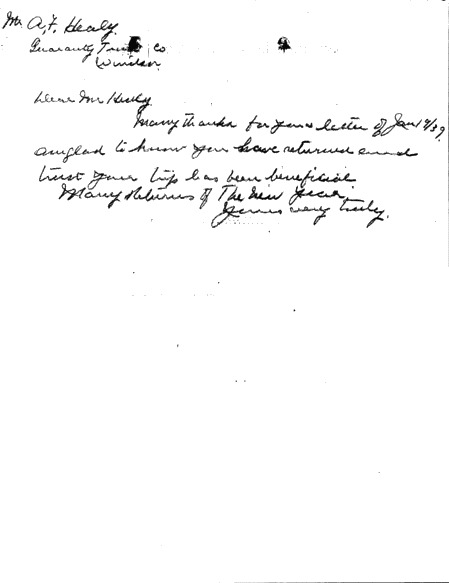 Mr. A. F. Healy.
Guaranty Trust Co
Windsor
Dear Mr Healy
Many thanks for your letter of Jan
am glad to know you have returned and
trust your trip has been beneficial
Many Returns of The New Year,
Yours very truly.